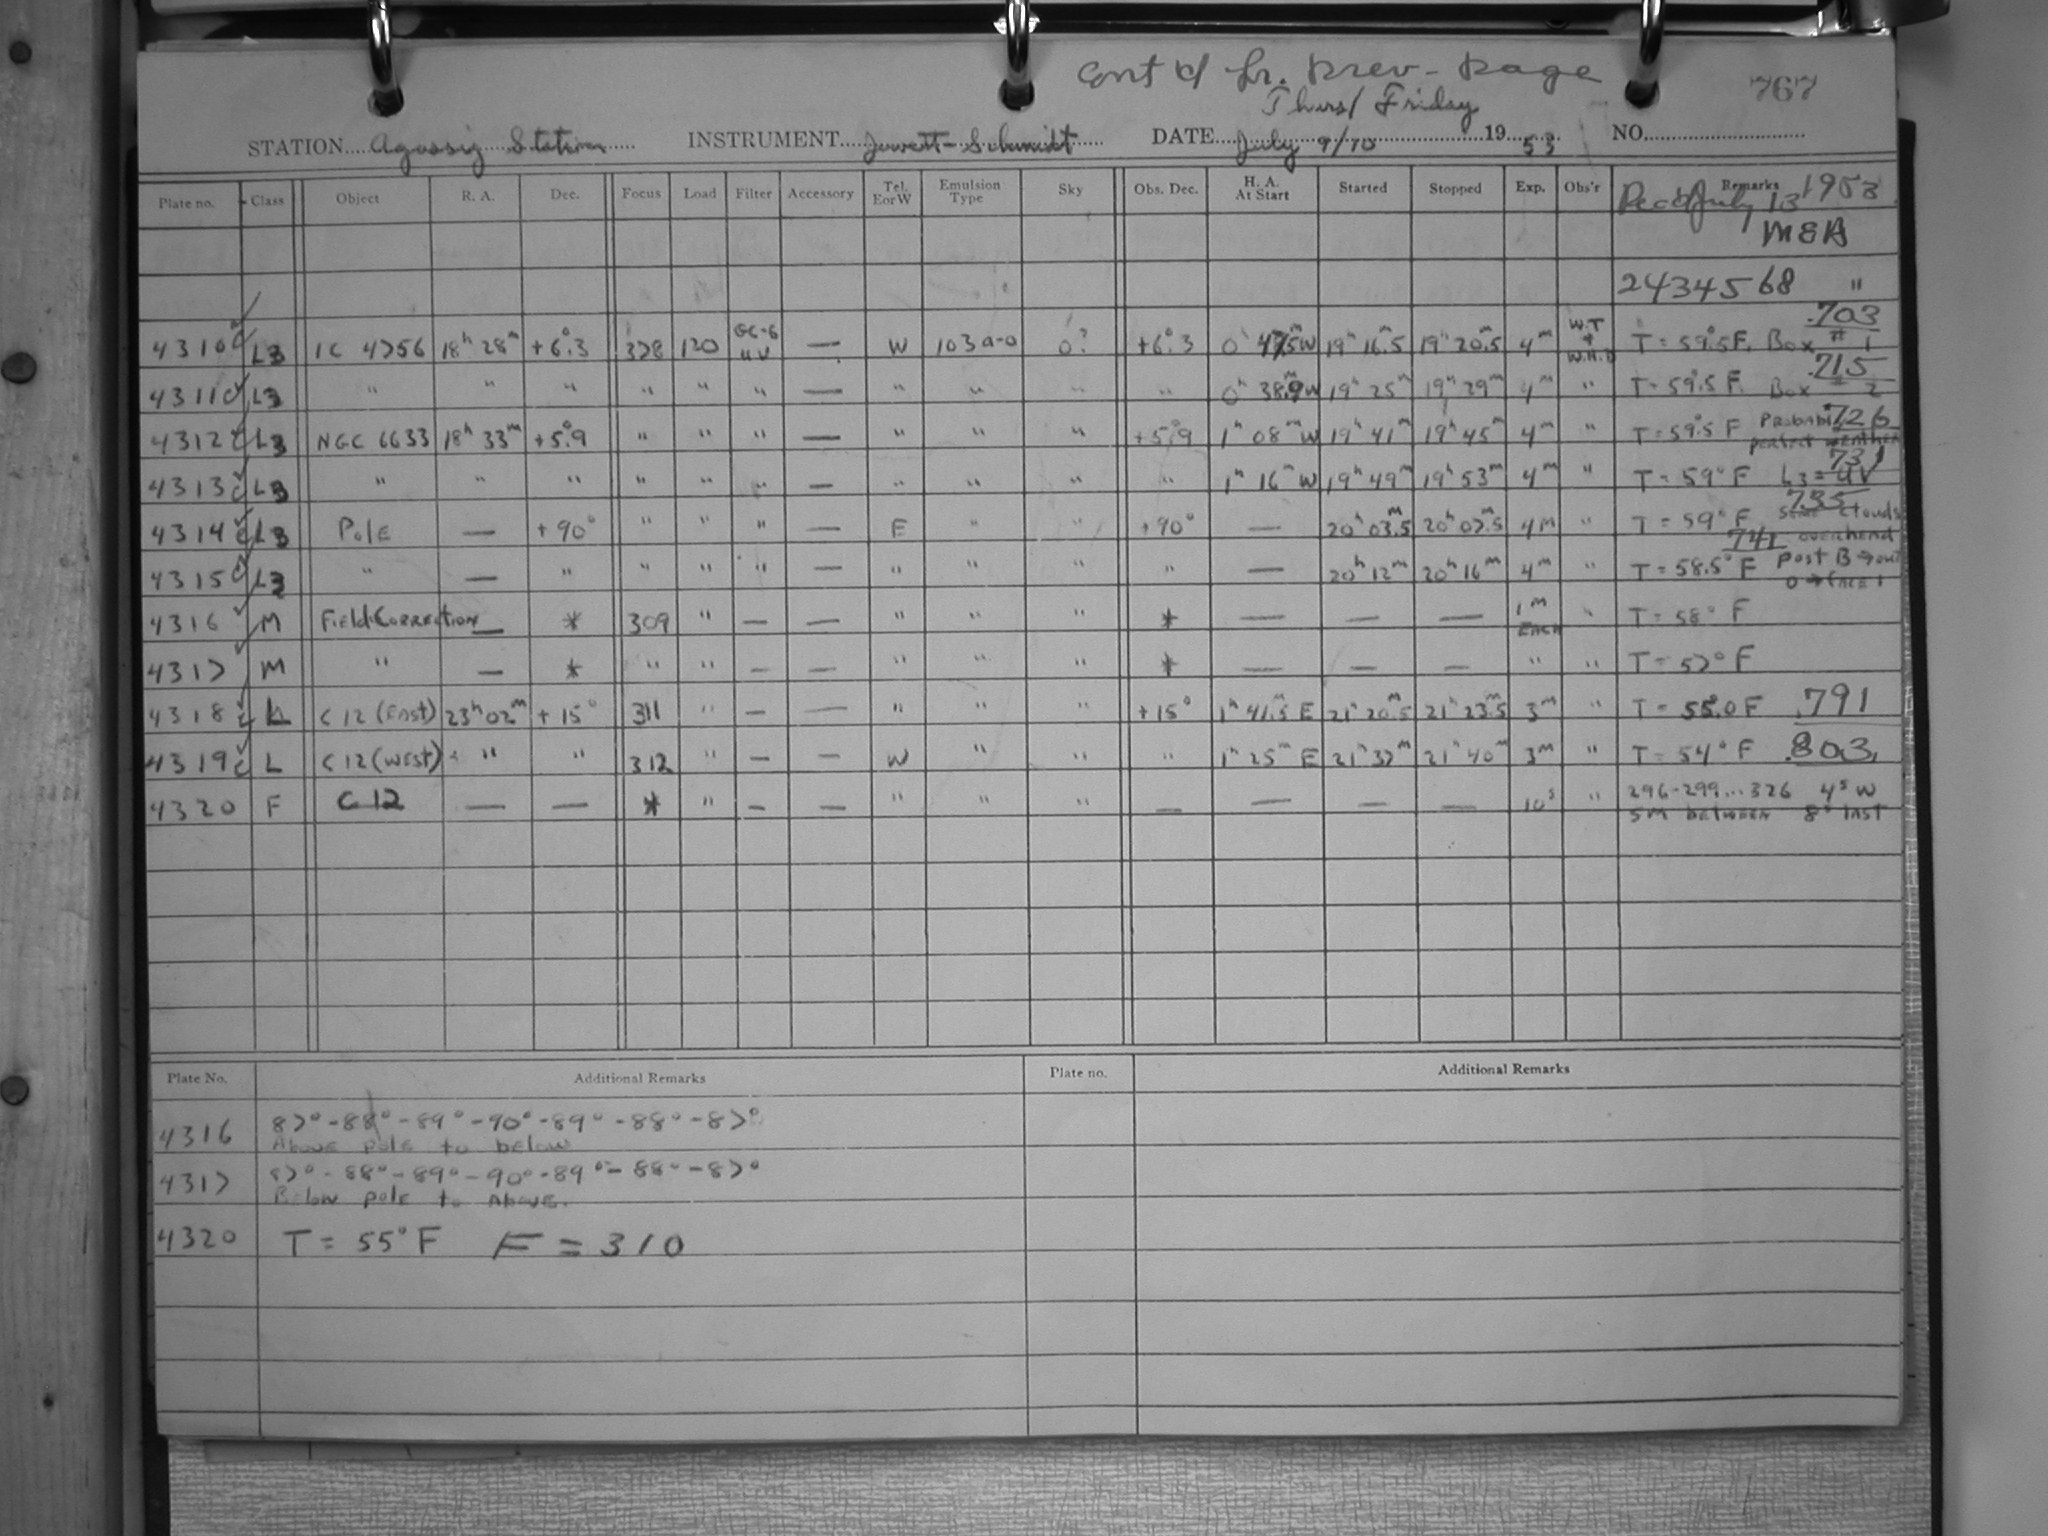 Cont'd fr. prev. page
767
Thurs/Friday
STATION Agassiz Station INSTRUMENT Jewett-Schmidt DATE July 9/10 1953 NO.
Plate no. Class Object R. A. Dec. Focus Load Filter Accessory Tel. E or W Emulsion Type Sky Obs. Dec. H. A. At Start Started Stopped Exp. Obs'r Remarks
Rec'd July 13 1953
M&A
2434568 "
4310 c L3 IC 4756 18h 28m +6°.3 328 120 GG-6 UV — W 103a-O 0? +6°.3 19h 16m.5 19h 20m.5 4m W.T & W.H.D T = 59°.5 F. Box #1 .703
4311 c L3 " " " " " " — " " " " 0h 38m.9 W 19h 25m 19h 29m 4m " T = 59°.5 F. Box 2 .715
4312 c L3 NGC 6633 18h 33m +5°.9 " " " — " " " +5°.9 1h 08m W 19h 41m 19h 45m 4m " T = 59°.5 F Probably perfect weather .726
4313 c L3 " " " " " " — " " " " 1h 16m W 19h 49m 19h 53m 4m " T = 59° F L3 = UV .731
4314 c L3 Pole — +90° " " " — E " " +90° — 20h 03m.5 20h 07m.5 4m " T = 59° F clouds overhead .735
4315 c L3 " — " " " " — " " " " — 20h 12m 20h 16m 4m " T = 58.5° F Post B → out 0 → face 1 .741
4316 M Field Correction — * 309 " — — " " " * — — — 1m EACH " T = 58° F
4317 M " — * " " — — " " " * — — — " " T = 57° F
4318 c L C 12 (East) 23h 02m +15° 311 " — — " " " +15° 1h 41m.5 E 21h 20m.5 21h 23m.5 3m " T = 55°.0 F .791
4319 c L C 12 (West) " " 312 " — — W " " " 1h 25m E 21h 37m 21h 40m 3m " T = 54° F .803
4320 F C 12 — — * " — — " " " — — — — 10s " 296-299...326 4s W
5m between 8s last
Plate No. Additional Remarks Plate no. Additional Remarks
4316 87°-88°-89°-90°-89°-88°-87°
Above pole to below
4317 87°-88°-89°-90°-89°-88°-87°
Below pole to Above.
4320 T = 55°F F = 310